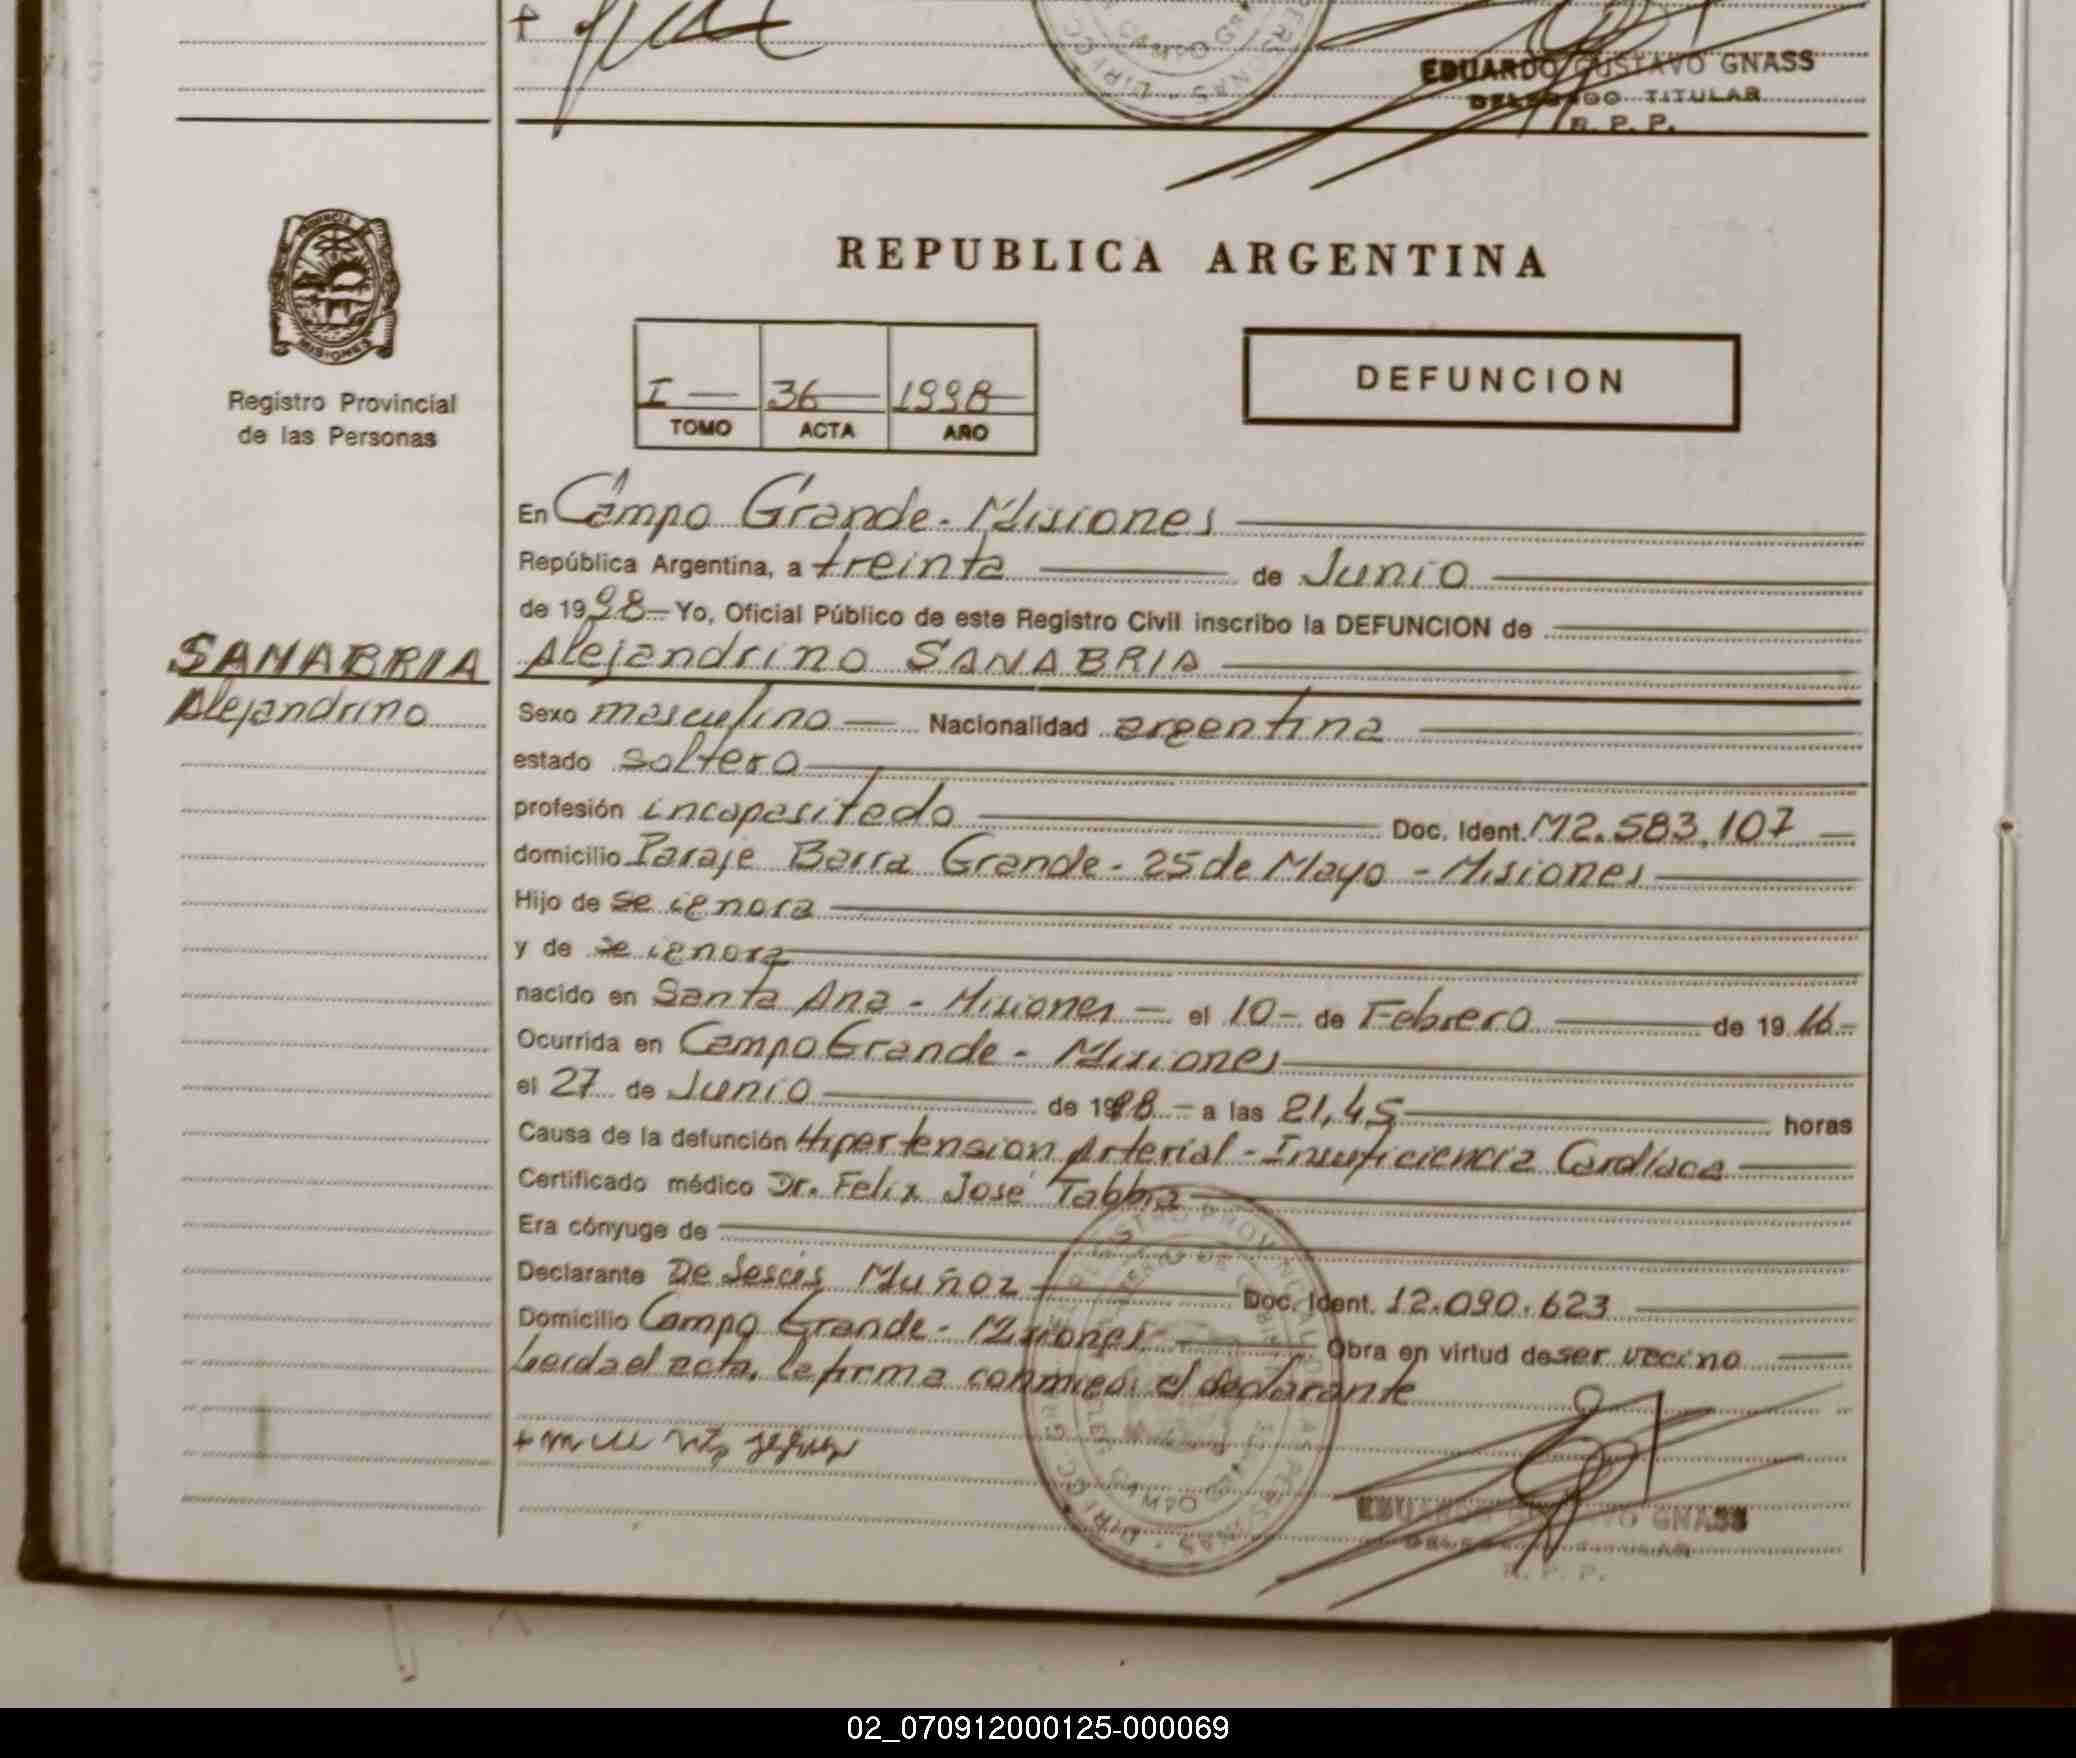 EDUARDO GUSTAVO GNASS
DELEGADO TITULAR
R. P. P.
PROVINCIA DE
MISIONES
Registro Provincial
de las Personas
REPUBLICA ARGENTINA
I — 36 — 1998 —
TOMO ACTA AÑO
DEFUNCION
En Campo Grande - Misiones
República Argentina, a treinta de Junio
de 1998 — Yo, Oficial Público de este Registro Civil inscribo la DEFUNCION de
SANABRIA
Alejandrino
Alejandrino SANABRIA
Sexo masculino — Nacionalidad argentina
estado soltero
profesión incapasitado Doc. Ident. M2.583.107 —
domicilio Paraje Barra Grande - 25 de Mayo - Misiones
Hijo de se ignora
y de se ignora
nacido en Santa Ana - Misiones — el 10 - de Febrero de 19 16 -
Ocurrida en Campo Grande - Misiones
el 27 de Junio de 1998 - a las 21,45 horas
Causa de la defunción Hipertension Arterial - Insuficiencia Cardíaca
Certificado médico Dr. Felix José Tabbia
Era cónyuge de
Declarante De Jesús Muñoz Doc. Ident. 12.090.623
Domicilio Campo Grande - Misiones Obra en virtud de ser vecino
Leida el acta, la firma conmigo el declarante
EDUARDO GUSTAVO GNASS
DELEGADO TITULAR
R. P. P.
02_070912000125-000069